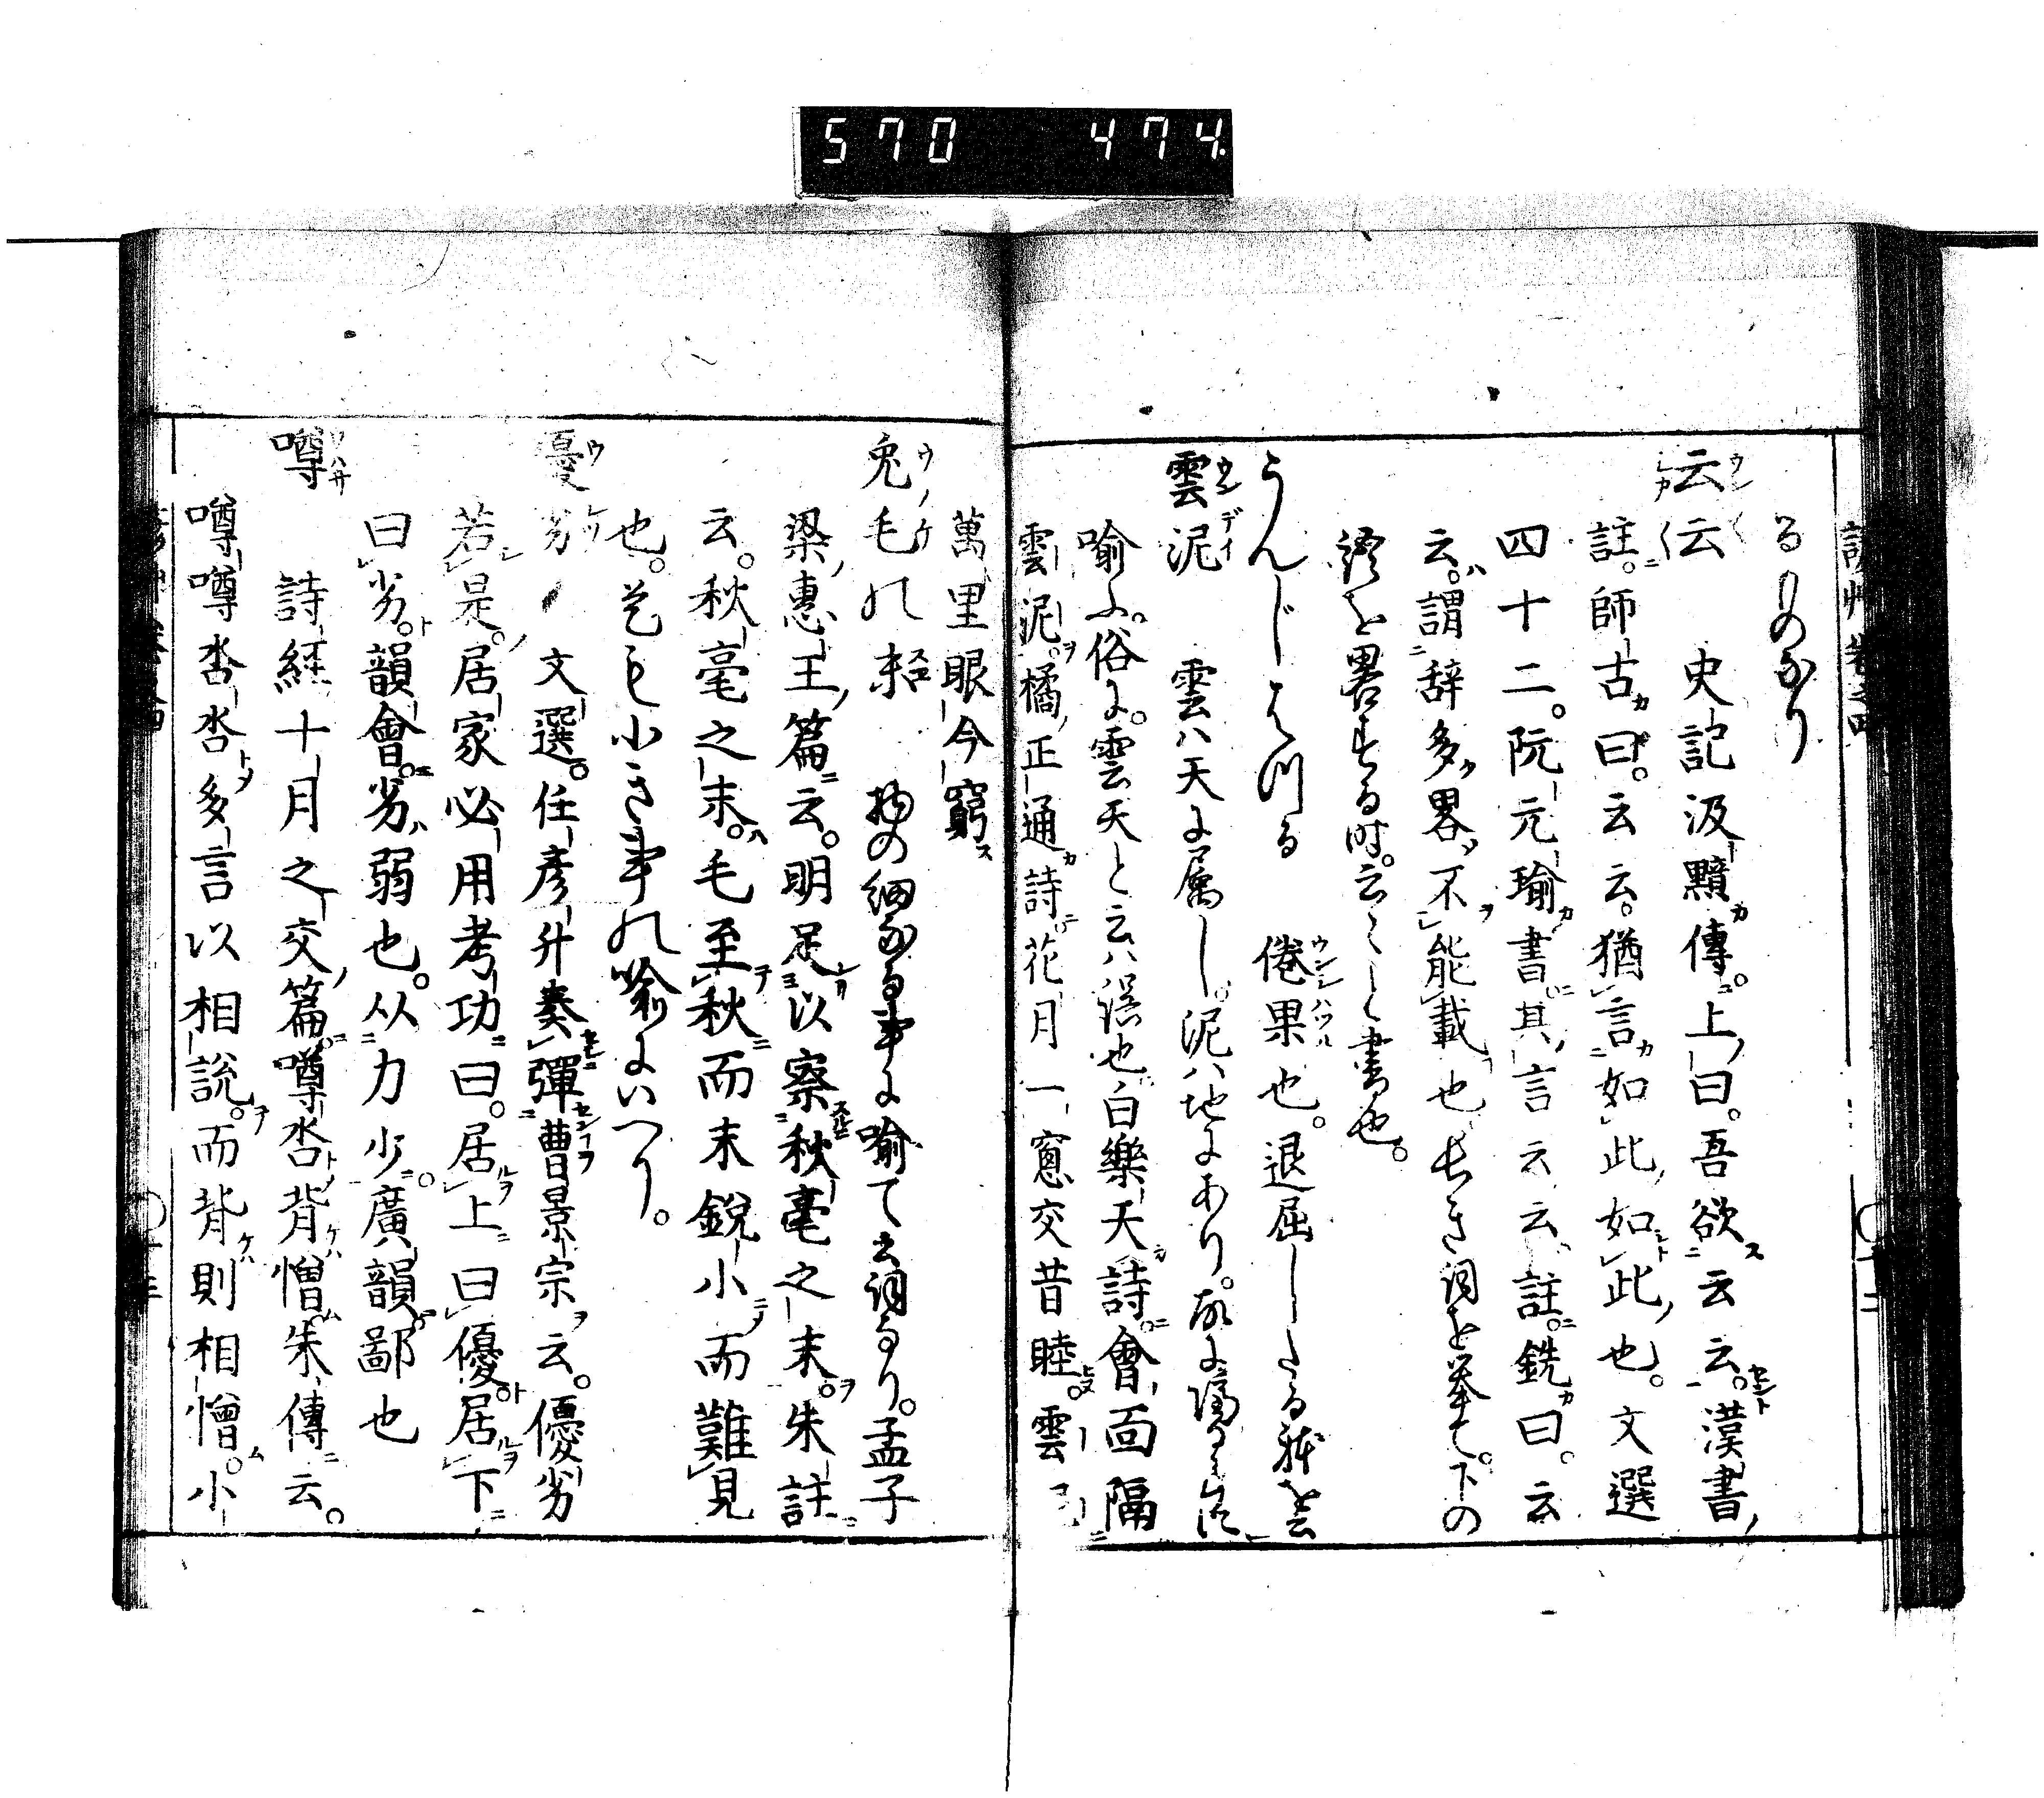 570 474
るものなり
云云 史記汲黯傳。上曰。吾欲云云。漢書
註。師古曰。云云。猶言如此如此也。文選
四十二。阮元瑜書。其言云云。註。銑曰。云
云。謂辞多畧不能載也。長き詞を挙て。下の
詞を畧する時。云云と書也。
うんじはつる 倦果也。退屈したる躰を云
雲泥 雲ハ天に属し。泥ハ地にあり。故に隔るに
喩ふ。俗に。雲天と云ハ誤也。白樂天詩。會面隔
雲泥。橘正通詩。花月一窻交昔睦。雲
萬里眼今窮
兎毛の末 物の細なる事に喩て云詞なり。孟子
梁惠王篇云。明足以察秋毫之末。朱註
云。秋毫之末。毛至秋而末銳小而難見
也。是も小き事の喩にいへり。
優劣 文選。任彥升奏彈曹景宗云。優劣
若是。居家必用考功曰。居上曰優居下
曰劣。韻會。劣弱也。从力少。廣韻。鄙也
噂 詩経十月之交篇。噂沓背憎。朱傳云。
噂噂沓沓多言以相說。而背則相憎。小